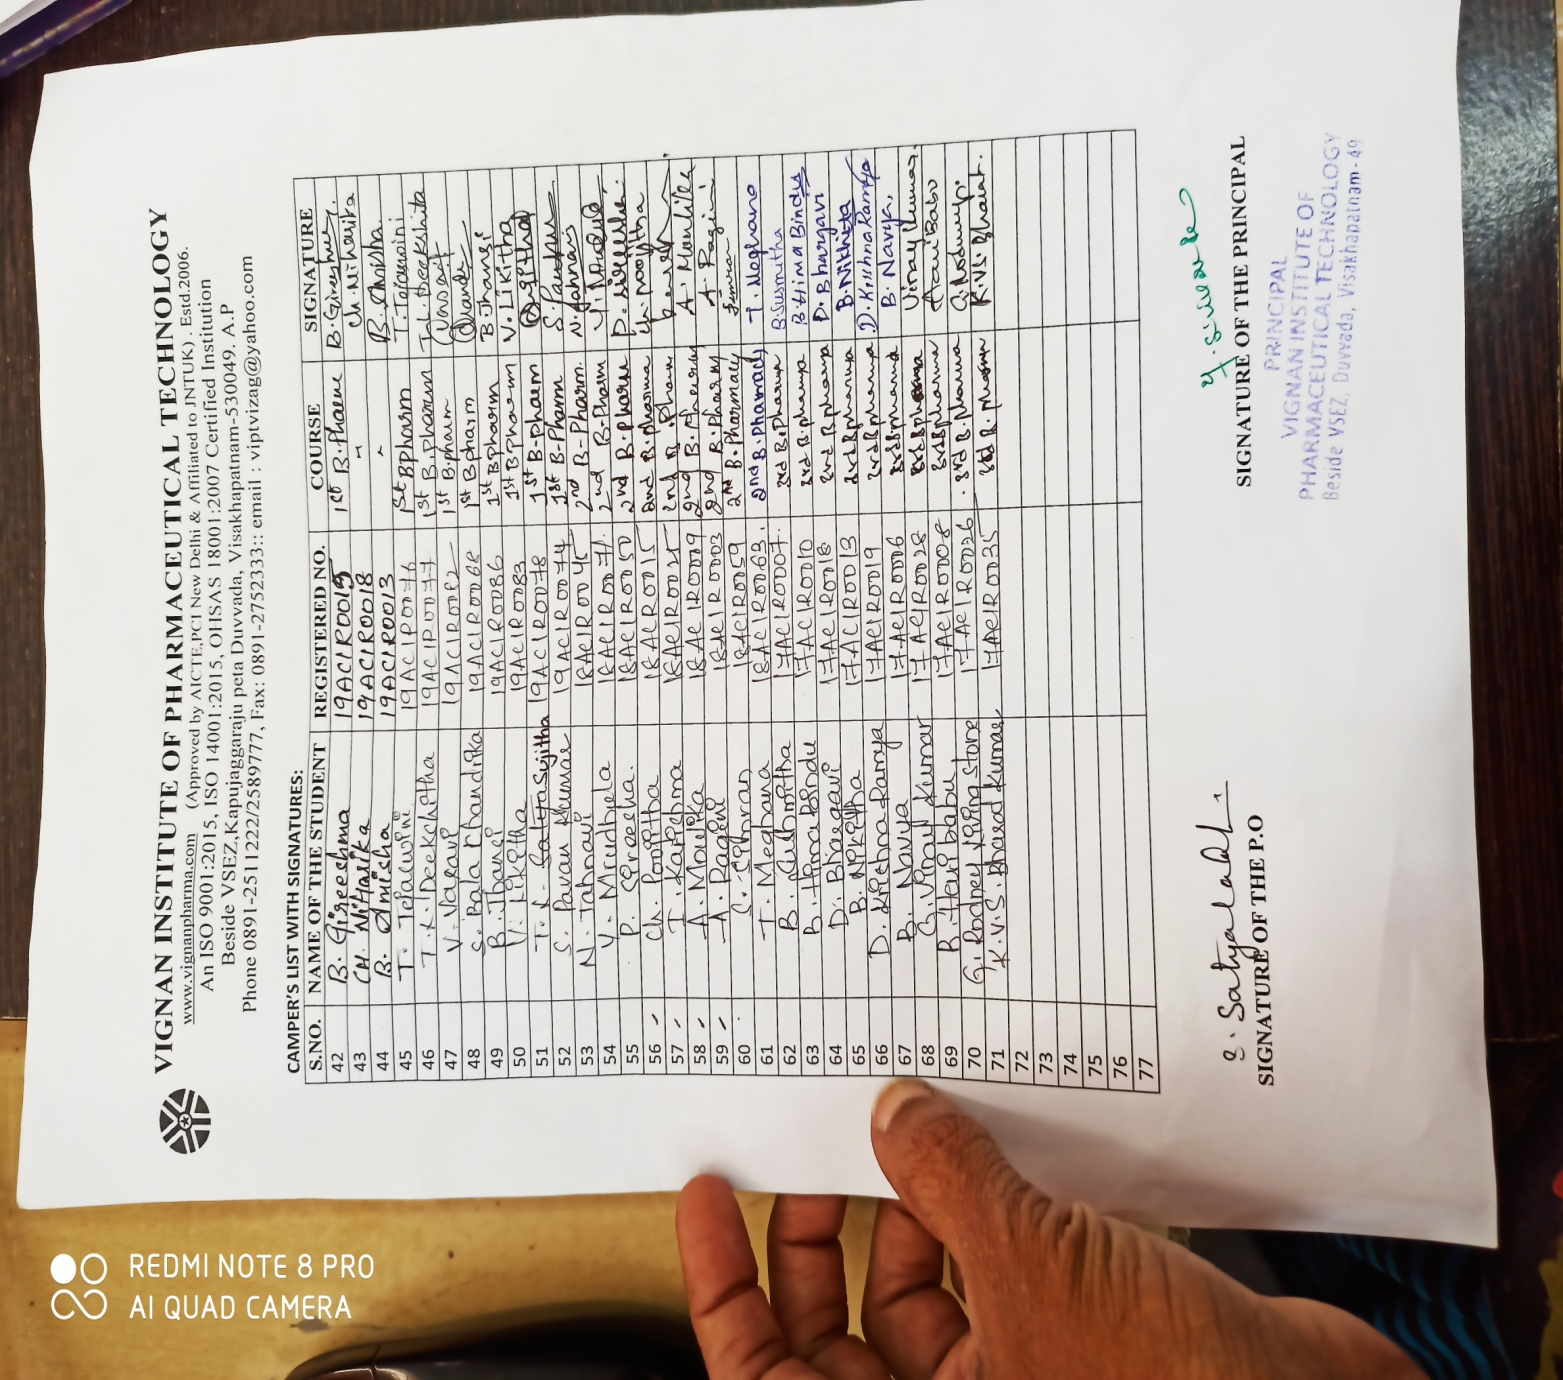 VIGNAN INSTITUTE OF PHARMACEUTICAL TECHNOLOGY
www.vignanpharma.com (Approved by AICTE,PCI New Delhi & Affiliated to JNTUK) . Estd.2006.
An ISO 9001:2015, ISO 14001:2015, OHSAS 18001:2007 Certified Institution
Beside VSEZ,Kapujaggaraju peta Duvvada, Visakhapatnam-530049. A.P
Phone 0891-2511222/2589777, Fax: 0891-2752333:: email : viptvizag@yahoo.com
CAMPER'S LIST WITH SIGNATURES:
S.NO. NAME OF THE STUDENT REGISTERED NO. COURSE SIGNATURE
42 B. Gireeshma 19AC1R0015 1st B.Pharm B.Gireeshma
43 CH. Niharika 19AC1R0018 - Ch.Niharika
44 B. Amisha 19AC1R0013 - B.Amisha
45 T. Tejaswini 19AC1R0076 1st B.Pharm T.Tejaswini
46 T.L. Deekshitha 19AC1R0077 1st B.pharm T.L.Deekshita
47 V. Vasavi 19AC1R0082 1st B.pharm Vasavi
48 S. Bala Chandrika 19AC1R0068 1st B.pharm
49 B. Jhansi 19AC1R0086 1st B.pharm B.Jhansi
50 V. Likitha 19AC1R0083 1st B.Pharm V.Likitha
51 T.L. Satya Sujitha 19AC1R0078 1st B.Pharm Sujitha
52 S. Pavan Kumar 19AC1R0074 1st B.Pharm S.Pavan
53 N. Jahnavi 18AC1R0045 2nd B.Pharm. N.Jahnavi
54 Y. Mrudhula 18AC1R0071. 2nd B.Pharm
55 P. Sireesha. 18AC1R0050 2nd B.pharm P.Sireesha.
56 Ch. Poojitha 18AC1R0015 2nd B.pharma Ch.Poojitha
57 T. Karishma 18AC1R0025 2nd B.Pharm
58 A. Moulika 18AC1R0009 2nd B.Pharmacy A.Moulika
59 A. Ragini 18AC1R0003 2nd B.Pharmacy A.Ragini
60 18AC1R0059 2nd B.Pharmacy
61 T. Meghana 18AC1R0063. 2nd B.Pharmacy T.Meghana
62 B. Sushmitha 17AC1R0007. 3rd B.Pharma B.Susmitha
63 B. Hima Bindu 17AC1R0010 3rd B.pharma B.Hima Bindu
64 D. Bhargavi 17AC1R0018 3rd B.pharma D.Bhargavi
65 B. Nikhitha 17AC1R0013 3rd B.pharma B.Nikhitta
66 D. Krishna Ramya 17AC1R0019 3rd B.pharma D.Krishna Ramya
67 B. Navya 17AC1R0006 3rd B.pharma B. Navya.
68 G. Vinay Kumar 17AC1R0028 3rd B.pharma Vinay Kumar.
69 B. Hari babu 17AC1R0008 3rd B.pharma Hari Babu
70 G. Rodney Living Stone 17AC1R0026 3rd B.pharma
71 K.V.S. Bharad Kumar 17AC1R0035 3rd B.pharm K.VS.Bharat.
72
73
74
75
76
77
S. Satyalakshmi
SIGNATURE OF THE P.O
SIGNATURE OF THE PRINCIPAL
PRINCIPAL
VIGNAN INSTITUTE OF
PHARMACEUTICAL TECHNOLOGY
Beside VSEZ, Duvvada, Visakhapatnam-49
REDMI NOTE 8 PRO
AI QUAD CAMERA